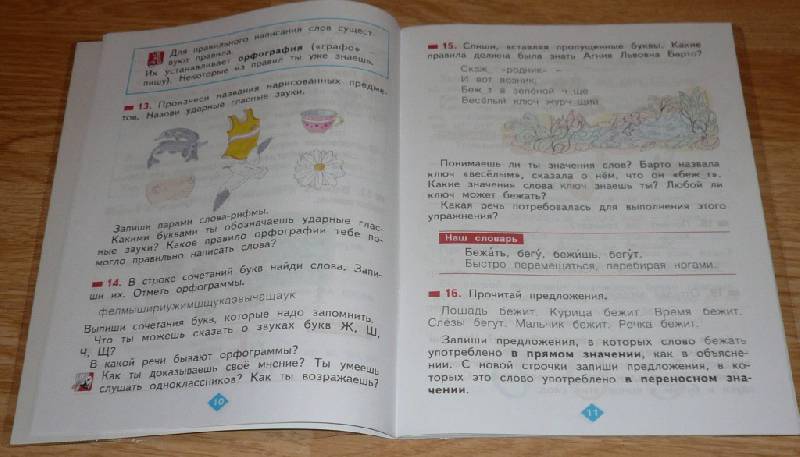 Для правильного написания слов сущест-
вуют правила.
Их устанавливает орфография («графо»
пишу). Некоторые из правил ты уже знаешь.
13. Произнеси названия нарисованных предме-
тов. Назови ударные гласные звуки.
Запиши парами слова-рифмы.
Какими буквами ты обозначаешь ударные глас-
ные звуки? Какое правило орфографии тебе по-
могло правильно написать слова?
14. В строке сочетаний букв найди слова. Запи-
ши их. Отметь орфограммы.
Выпиши сочетания букв, которые надо запомнить.
Что ты можешь сказать о звуках букв Ж, Ш,
Ч, Щ?
В какой речи бывают орфограммы?
Как ты доказываешь своё мнение? Ты умеешь
слушать одноклассников? Как ты возражаешь?
10
15. Спиши, вставляя пропущенные буквы. Какие
правила должна была знать Агния Львовна Барто?
Скаж «родник» –
И вот возник,
Беж т в зелёной ч ще
Весёлый ключ журч щий.
Понимаешь ли ты значения слов? Барто назвала
ключ «весёлым», сказала о нём, что он «беж т».
Какие значения слова ключ знаешь ты? Любой ли
ключ может бежать?
Какая речь потребовалась для выполнения этого
упражнения?
Наш словарь
Бежа́ть, бегу́, бежи́шь, бегу́т.
Быстро перемещаться, перебирая ногами.
16. Прочитай предложения.
Лошадь бежит. Курица бежит. Время бежит.
Слёзы бегут. Мальчик бежит. Речка бежит.
Запиши предложения, в которых слово бежать
употреблено в прямом значении, как в объясне-
нии. С новой строчки запиши предложения, в ко-
торых это слово употреблено в переносном зна-
чении.
11